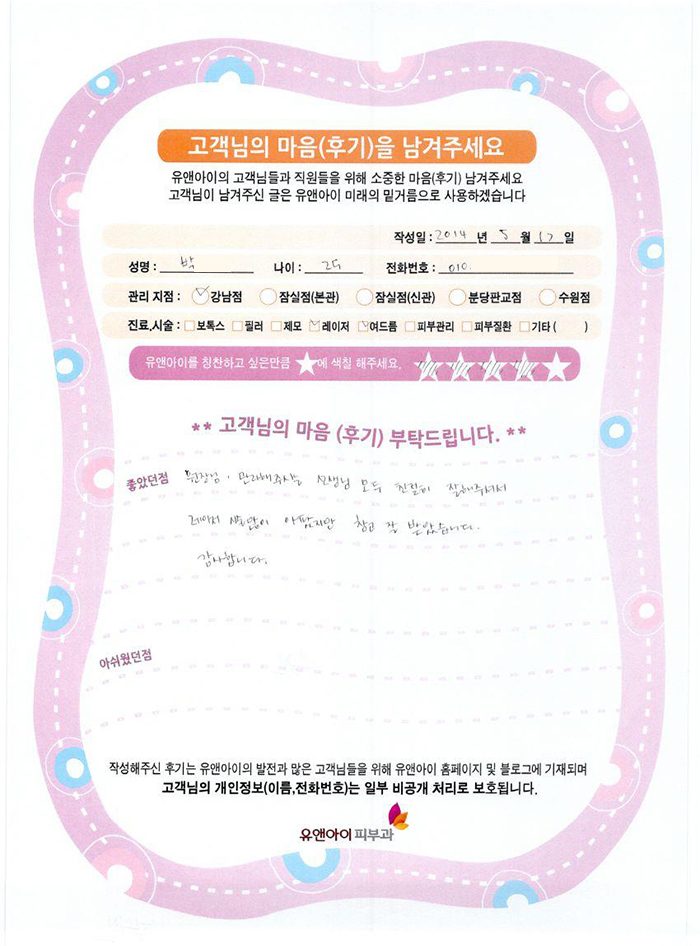 고객님의 마음(후기)을 남겨주세요
유앤아이의 고객님들과 직원들을 위해 소중한 마음(후기) 남겨주세요
고객님이 남겨주신 글은 유앤아이 미래의 밑거름으로 사용하겠습니다
작성일 : 2014 년 5 월 17 일
성명 : 박 나이 : 전화번호 : 010.
관리 지점 : 강남점 잠실점(본관) 잠실점(신관) 분당판교점 수원점
진료,시술 : 보톡스 필러 제모 레이저 여드름 피부관리 피부질환 기타 ( )
유앤아이를 칭찬하고 싶은만큼 ★에 색칠 해주세요.
** 고객님의 마음 (후기) 부탁드립니다. **
좋았던점 원장님, 관리해주시는 선생님 모두 친절히 잘해주셔서
레이저 아팠지만 참고 잘 받았습니다.
감사합니다.
아쉬웠던점
작성해주신 후기는 유앤아이의 발전과 많은 고객님들을 위해 유앤아이 홈페이지 및 블로그에 기재되며
고객님의 개인정보(이름,전화번호)는 일부 비공개 처리로 보호됩니다.
유앤아이 피부과